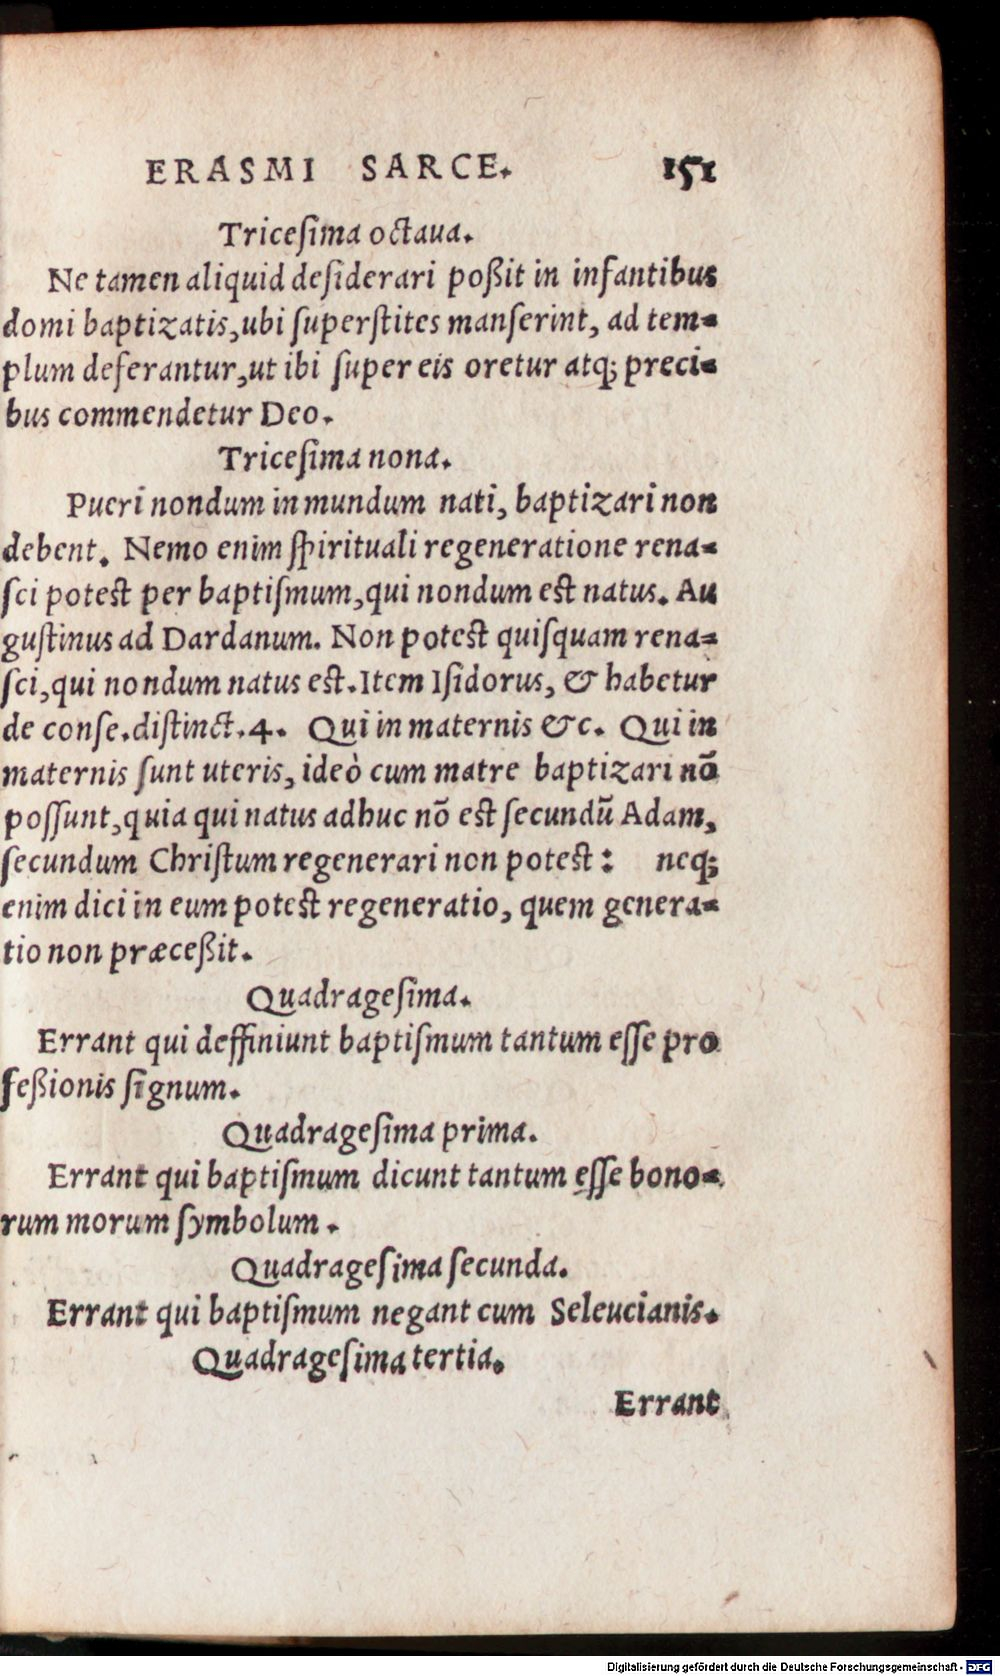 ERASMI SARCE. 151
Triceſima octaua.
Ne tamen aliquid deſiderari poßit in infantibus
domi baptizatis, ubi ſuperſtites manſerint, ad tem-
plum deferantur, ut ibi ſuper eis oretur atq; preci-
bus commendetur Deo.
Triceſima nona.
Pueri nondum in mundum nati, baptizari non
debent. Nemo enim ſpirituali regeneratione rena-
ſci poteſt per baptiſmum, qui nondum eſt natus. Au
guſtinus ad Dardanum. Non poteſt quiſquam rena-
ſci, qui nondum natus eſt. Item Iſidorus, & habetur
de conſe. diſtinct. 4. Qui in maternis &c. Qui in
maternis ſunt uteris, ideò cum matre baptizari nõ
poſſunt, quia qui natus adhuc nõ eſt ſecundũ Adam,
ſecundum Chriſtum regenerari non poteſt: neq;
enim dici in eum poteſt regeneratio, quem genera-
tio non præceßit.
Quadrageſima.
Errant qui deffiniunt baptiſmum tantum eſſe pro
feßionis ſignum.
Quadrageſima prima.
Errant qui baptiſmum dicunt tantum eſſe bono-
rum morum ſymbolum.
Quadrageſima ſecunda.
Errant qui baptiſmum negant cum Seleucianis.
Quadrageſima tertia.
Errant
Digitalisierung gefördert durch die Deutsche Forschungsgemeinschaft - DFG